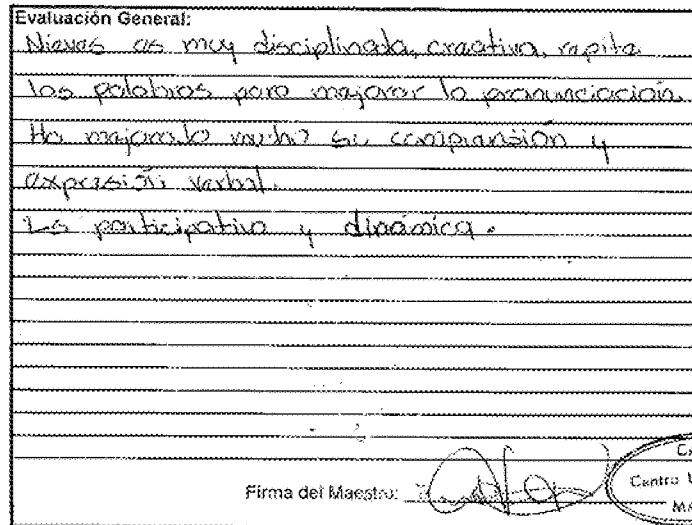 Evaluación General:
Nieves es muy disciplinada, creativa, repite
las palabras para mejorar la pronunciación.
Ha mejorado mucho su comprensión y
expresión verbal.
Es participativa y dinámica.
Firma del Maestro:
Centro